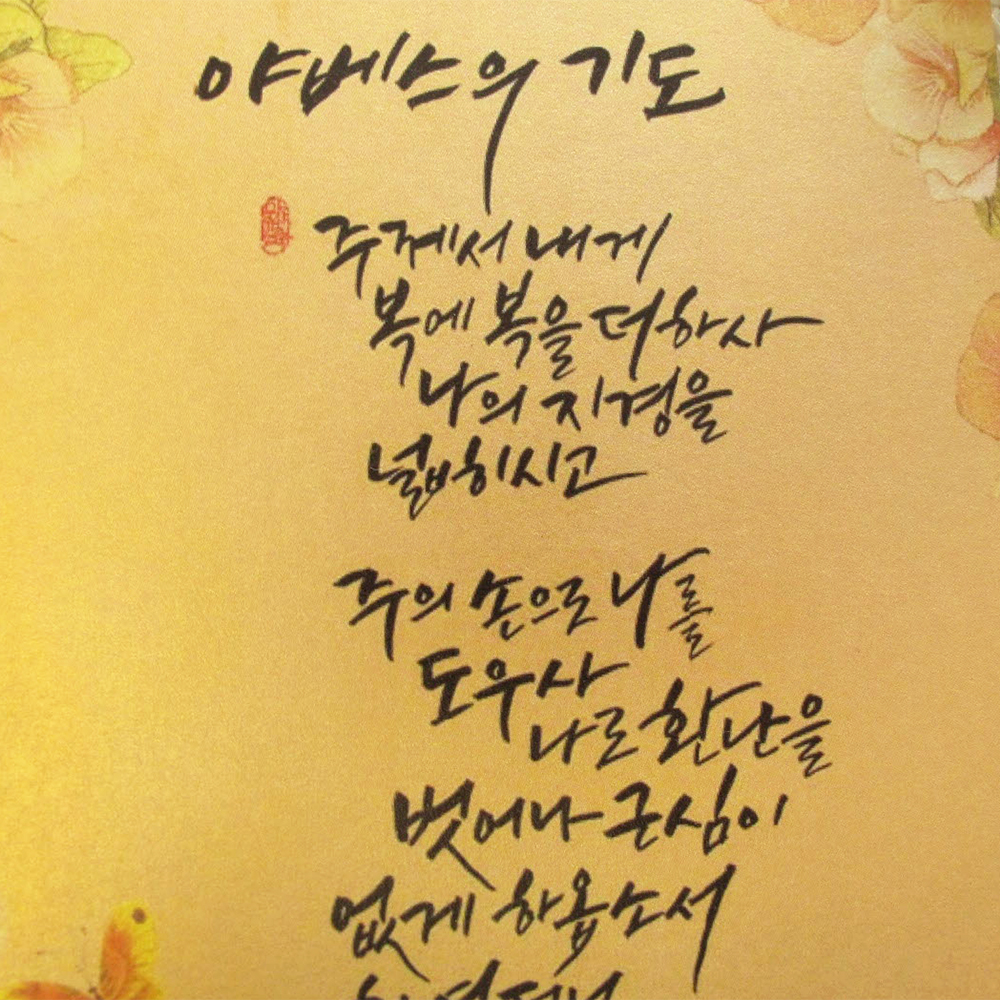 야베스의 기도
주께서 내게
복에 복을 더하사
나의 지경을
넓히시고
주의 손으로 나를
도우사
나로 환난을
벗어나 근심이
없게 하옵소서